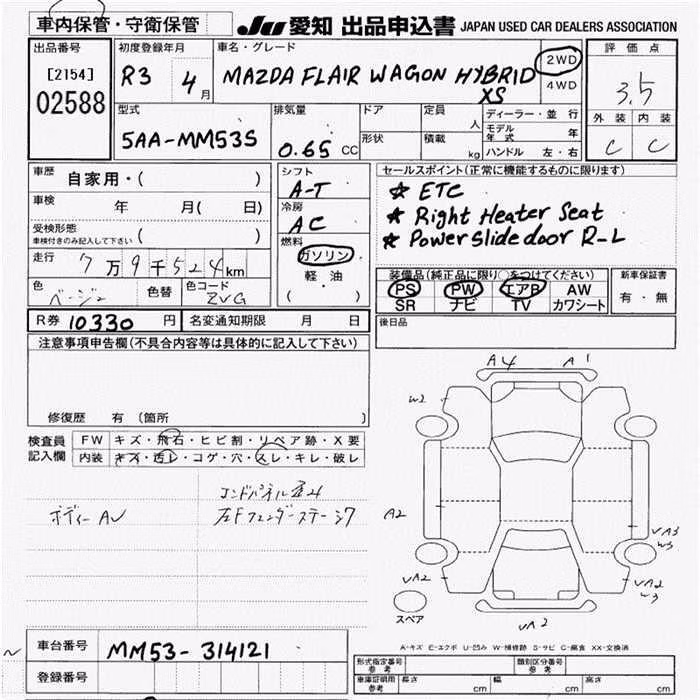 車内保管・守衛保管
JU 愛知 出品申込書 JAPAN USED CAR DEALERS ASSOCIATION
出品番号
[2154]
02588
初度登録年月
R3 4月
車名・グレード
MAZDA FLAIR WAGON HYBRID
XS
2WD
4WD
評価点
3.5
外装 内装
C C
型式
5AA-MM53S
排気量
0.65 CC
ドア
形状
定員
人
積載
kg
ディーラー・並行
モデル年式 年
ハンドル 左・右
車歴
自家用・( )
車検
年 月( 日)
受検形態
車検付きのみ記入して下さい ( )
走行
7万9千524km
色
ベージュ
色替
色コード
ZVG
シフト
A-T
冷房
AC
燃料
ガソリン
軽油
( )
セールスポイント(正常に機能するものに限ります)
☆ ETC
★ Right Heater Seat
★ Power slide door R-L
装備品(純正品に限り○をつけてください)
PS PW エアB AW
SR ナビ TV カワシート
新車保証書
有・無
R券 10330 円
名変通知期限 月 日
後日品
注意事項申告欄(不具合内容等は具体的に記入して下さい)
修復歴 有(箇所 )
検査員
記入欄
FW キズ・飛石・ヒビ割・リペア跡・X要
内装 キズ・汚レ・コゲ・穴・スレ・キレ・破レ
ボディーAU
左Fフェンダーステー
A4 A1
W2
A2
VA3
W3
VA2
VA2
W3
VA2
スペア
A-キズ E-エクボ U-凹み W-補修跡 S-サビ C-腐食 XX-交換済
車台番号
MM53-314121
登録番号
型式指定番号
参考
類別区分番号
参考
車庫証明用
参考
長さ cm
幅 cm
高さ cm